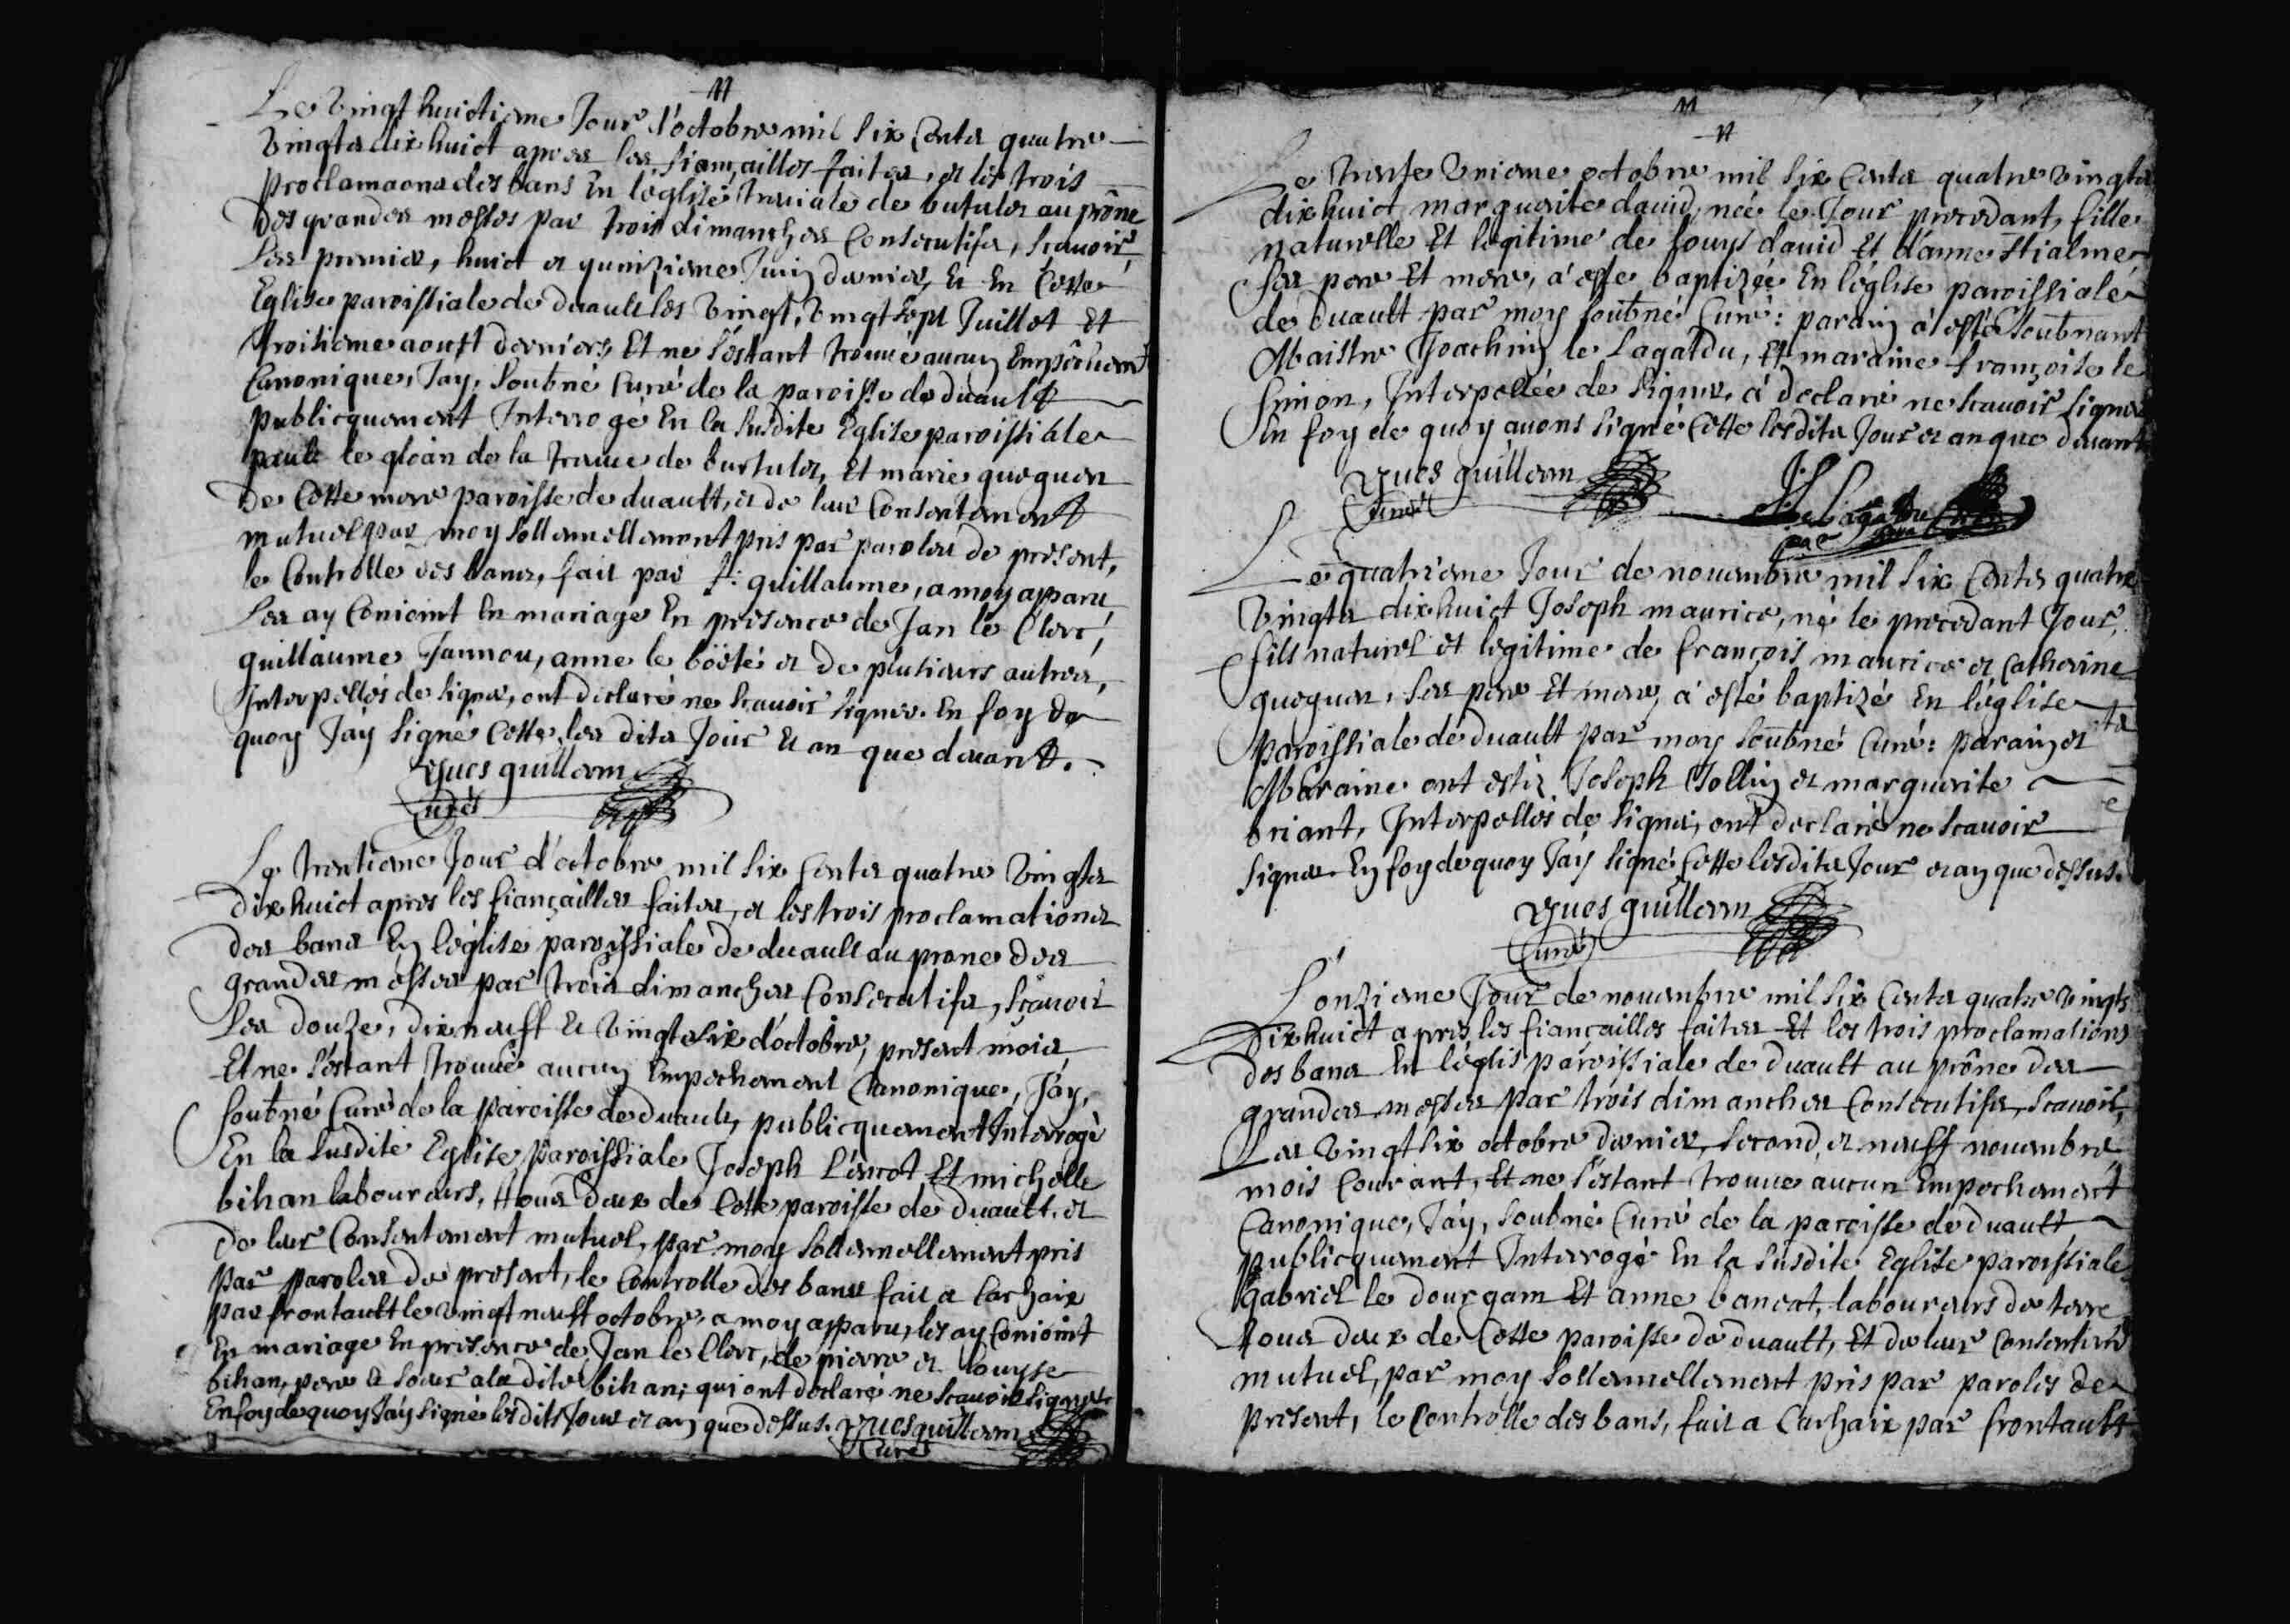 Le Vingt huictieme Jour d'octobre mil six Cents quatre
Vingts dix huict apres les fiançailles faites, et les trois
proclamaons des bans En l'eglise treviale de butules au prône
Des grandes messes par trois dimanches Consecutifs, scavoir,
Les premier, huict et quinzieme Juin dernier, Et En Cette
Eglise paroissiale de duault les Vingt, Vingt sept Juillet Et
troisieme aoust derniers, Et ne s'estant trouvé aucun Empêchemt
Canonique, Jay, soubné Curé de la paroisse de duault
publicquement Interrogé En la susdite Eglise paroissiale
paul le gloan de la treuve de burtules, Et marie queguen
De Cette mere paroisse de duault, et de leur Consentement
mutuel par moy sollemnellement pris par paroles de present,
le Controlle des bans, fait par guillaume, a moy apparu,
Les ay Conioint En mariage En presence de Jan le Clerc,
guillaume Jannou, anne le böété et de plusieurs autres,
Interpellés de signer, ont declaré ne scavoir signer. En foy de
quoy J'ay signé Cette, les dits Jour Et an que devant.
yves guillerm
Curé
Le trentieme Jour d'octobre mil six Cents quatre Vingts
Dix huict apres les fiançailles faites, et les trois proclamations
des bans En l'eglise paroissiale de duault au prone des
grandes messes par trois dimanches Consecutifs, sçavoir
Les douze, dix neuff Et Vingt six d'octobre, present mois,
Et ne s'estant trouvé aucun Empechement Canonique, J'ay,
soubné Curé de la paroisse de duault, publicquement Interrogé
En la susdite Eglise paroissiale Joseph Lescot Et michelle
bihan laboureurs, tous deux de Cette paroisse de Duault, et
De leur Consentement mutuel, par moy sollemnellement pris
par paroles de present, le Controlle des bans fait a Carhaix
par frontault le vingt neuff octobre, a moy apparu, les ay Conioint
En mariage En presence de Jan le Clerc, de pierre et Louysse
bihan, pere Et soeur a la dite bihan; qui ont declaré ne scavoir signer
En foy de quoy J'ay signé les dits Jour et an que dessus. yves guillerm
Curé
Le trente Unieme octobre mil six Cents quatre vingts
dix huict, marguerite david, née le Jour precedant, fille
naturelle Et legitime de Louys david Et d'anne stialme
ses pere Et mere, a esté baptizée En l'église paroissiale
de duault par moy soubné Curé: parain a esté soubnant
Maistre Joachim le Lagatdu, Et maraine françoise le
simon, Interpellée de signer, a declaré ne scavoir signer
En foy de quoy avons signé Cette lesdits Jour et an que devant
yves guillerm
Curé
J: Le Lagatdu
Le quatrieme Jour de novembre mil six Cents quatre
Vingts dix huict Joseph maurice, né le precedant Jour,
fils naturel et legitime de françois maurice et Catherine
queguen, ses pere Et mere, a esté baptizé En l'église
paroissiale de duault par moy soubné Curé: parain et
Maraine ont estéz Joseph Jollin et marguerite
briant, Interpellés de signer, ont declaré ne scavoir
signer. En foy de quoy J'ay signé Cette lesdits Jour et an que dessus.
yves guillerm
Curé
L'onzieme Jour de novembre mil six Cents quatre vingts
Dix huict apres les fiançailles faites Et les trois proclamations
des bans En l'eglis paroissiale de duault au prône des
grandes messes par trois dimanches Consecutifs, scavoir,
Les Vingt six octobre dernier, second, et neuff novembre
mois Courant, Et ne s'estant trouvé aucun Empechement
Canonique, J'ay, soubné Curé de la paroisse de duault
publicquement Interrogé En la susdite Eglise paroissiale
gabriel le dourgam Et anne bancat, laboureurs de terre
tous deux de Cette paroisse de duault, Et de leur Consentemt
mutuel, par moy sollemnellement pris par paroles de
present, le Controlle des bans, fait a Carhaix par frontault